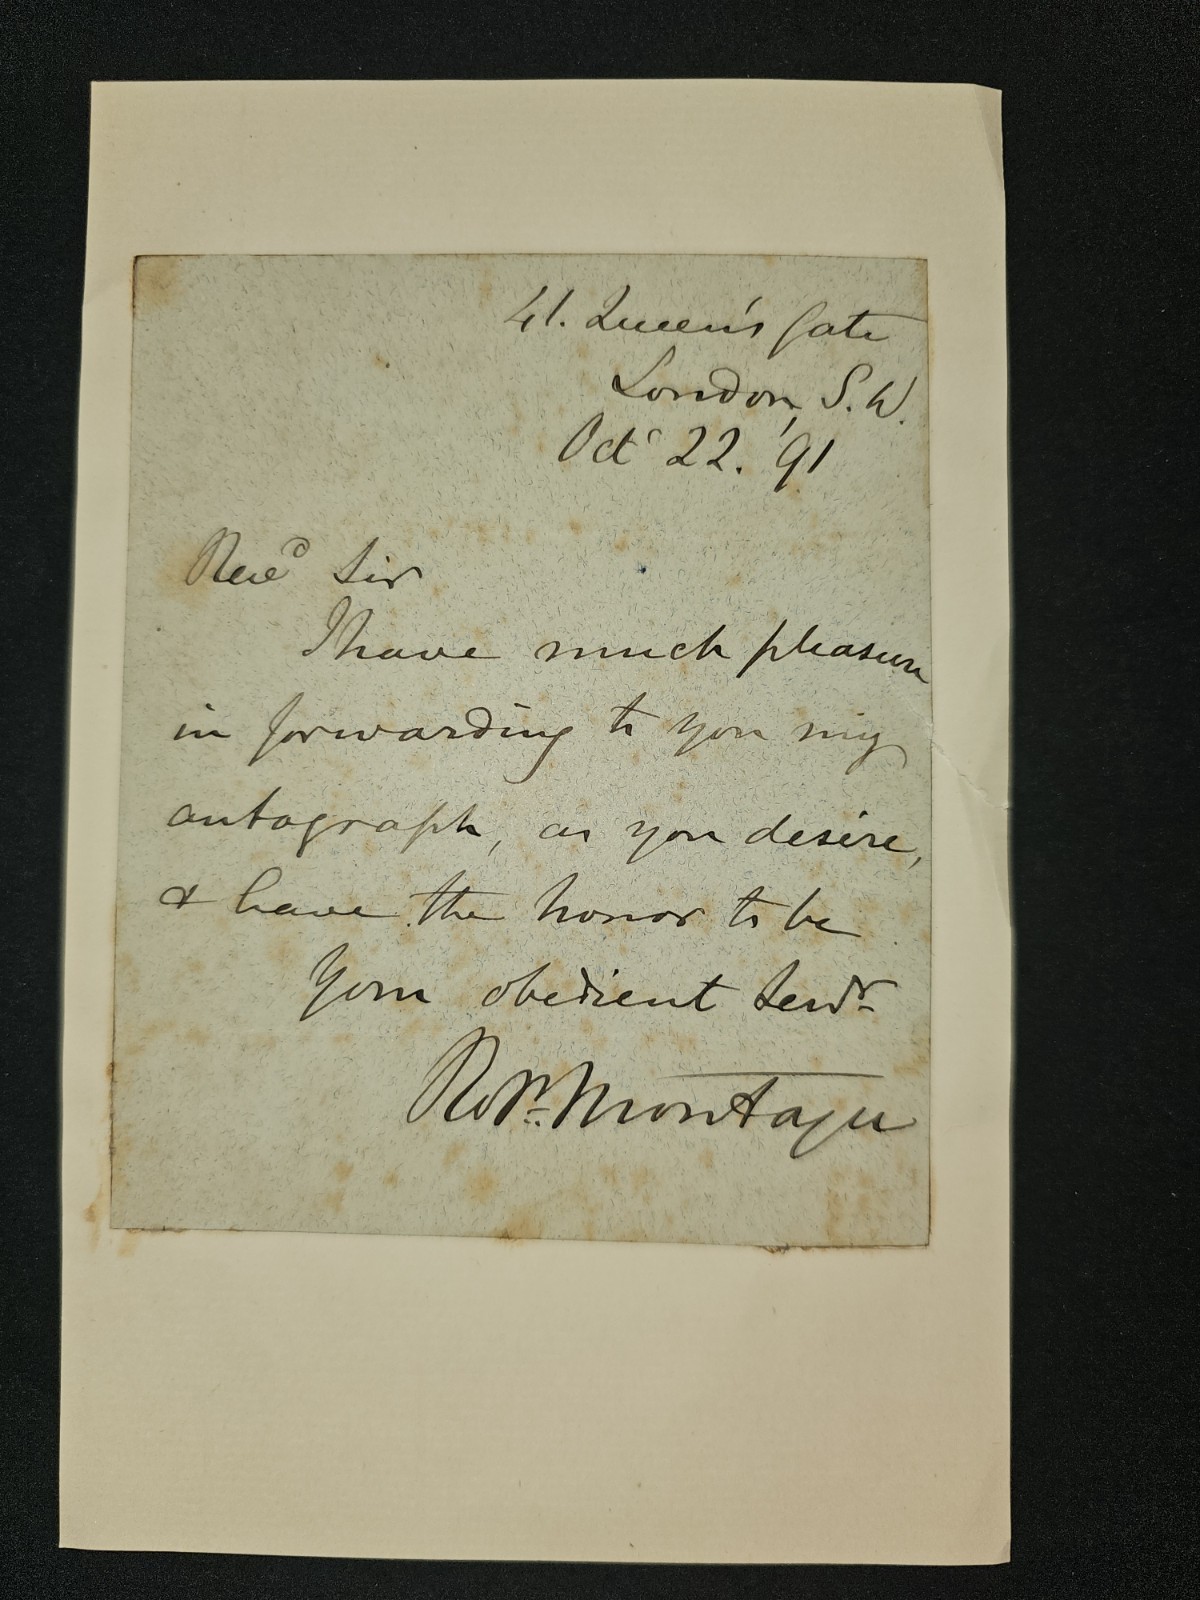 41. Queen's Gate
London, S.W.
Octr 22. '91
Revd Sir
I have much pleasure
in forwarding to you my
autograph, as you desire,
& have the honor to be
Your obedient Servt
Robt Montagu